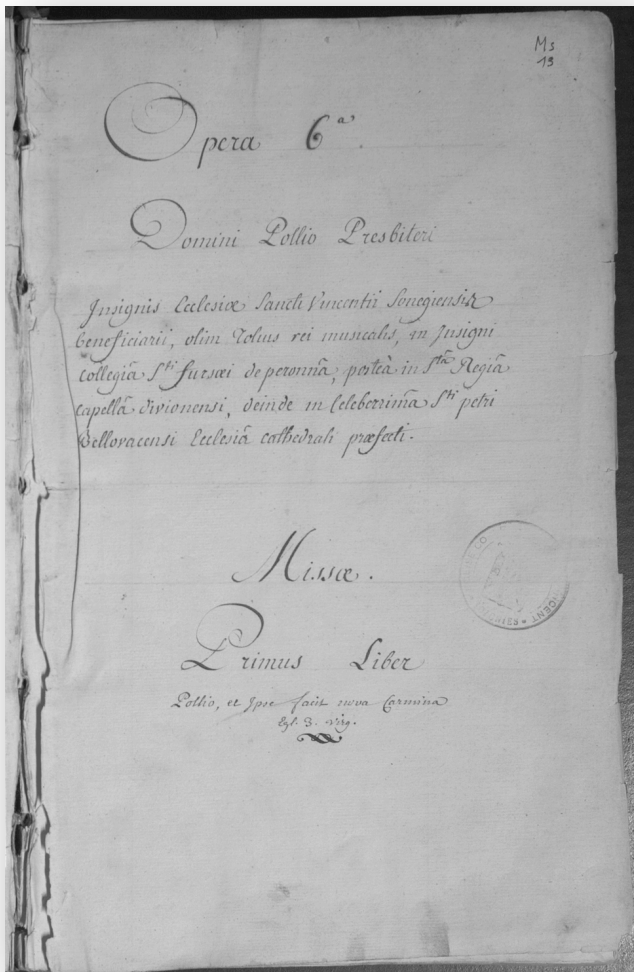 Ms
13
Opera 6a
Domini Pollio Presbiteri
Insignis Ecclesiæ Sancti Vincentii Sonegiensis
beneficiarii, olim Totius rei musicalis, in Insigni
Collegiâ Sti fursæi de peronnâ, posteà in Stâ Regiâ
Capellâ divionensi, deinde in Celeberrimâ Sti petri
Bellovacensi Ecclesiâ Cathedrali præfecti.
Missæ.
Primus Liber
Pollio, et Ipse facit nova Carmina
Egl. 3. Virg.